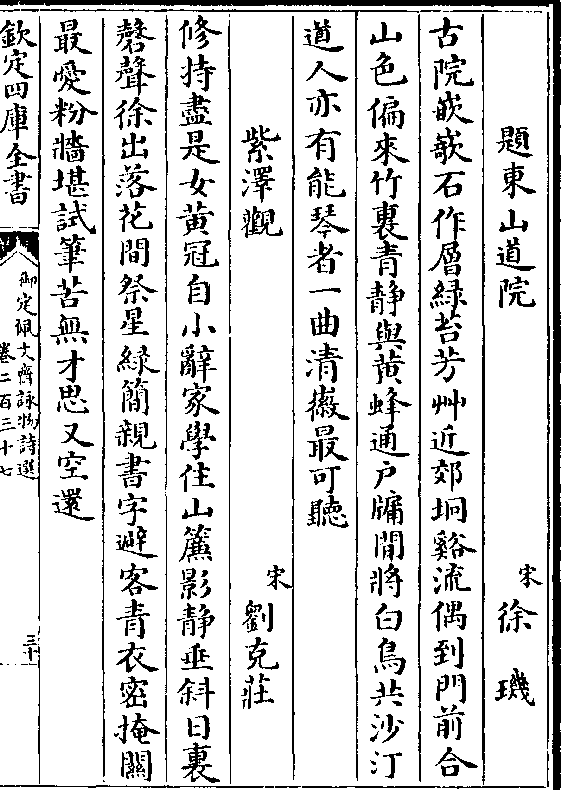 題東山道院
宋徐璣
古院嵌嵚石作層緑苔芳艸近郊坰谿流偶到門前合
山色偏來竹裏青静與黄蜂通户牖閒將白鳥共沙汀
道人亦有能琴者一曲清徽最可聽
紫澤觀
宋劉克莊
修持盡是女黄冠自小辭家學住山簾影静垂斜日裏
磬聲徐出落花間祭星緑簡親書字避客青衣密掩關
最愛粉牆堪試筆苦無才思又空還
欽定四庫全書
御定佩文齋詠物詩選
卷二百三十七
三十